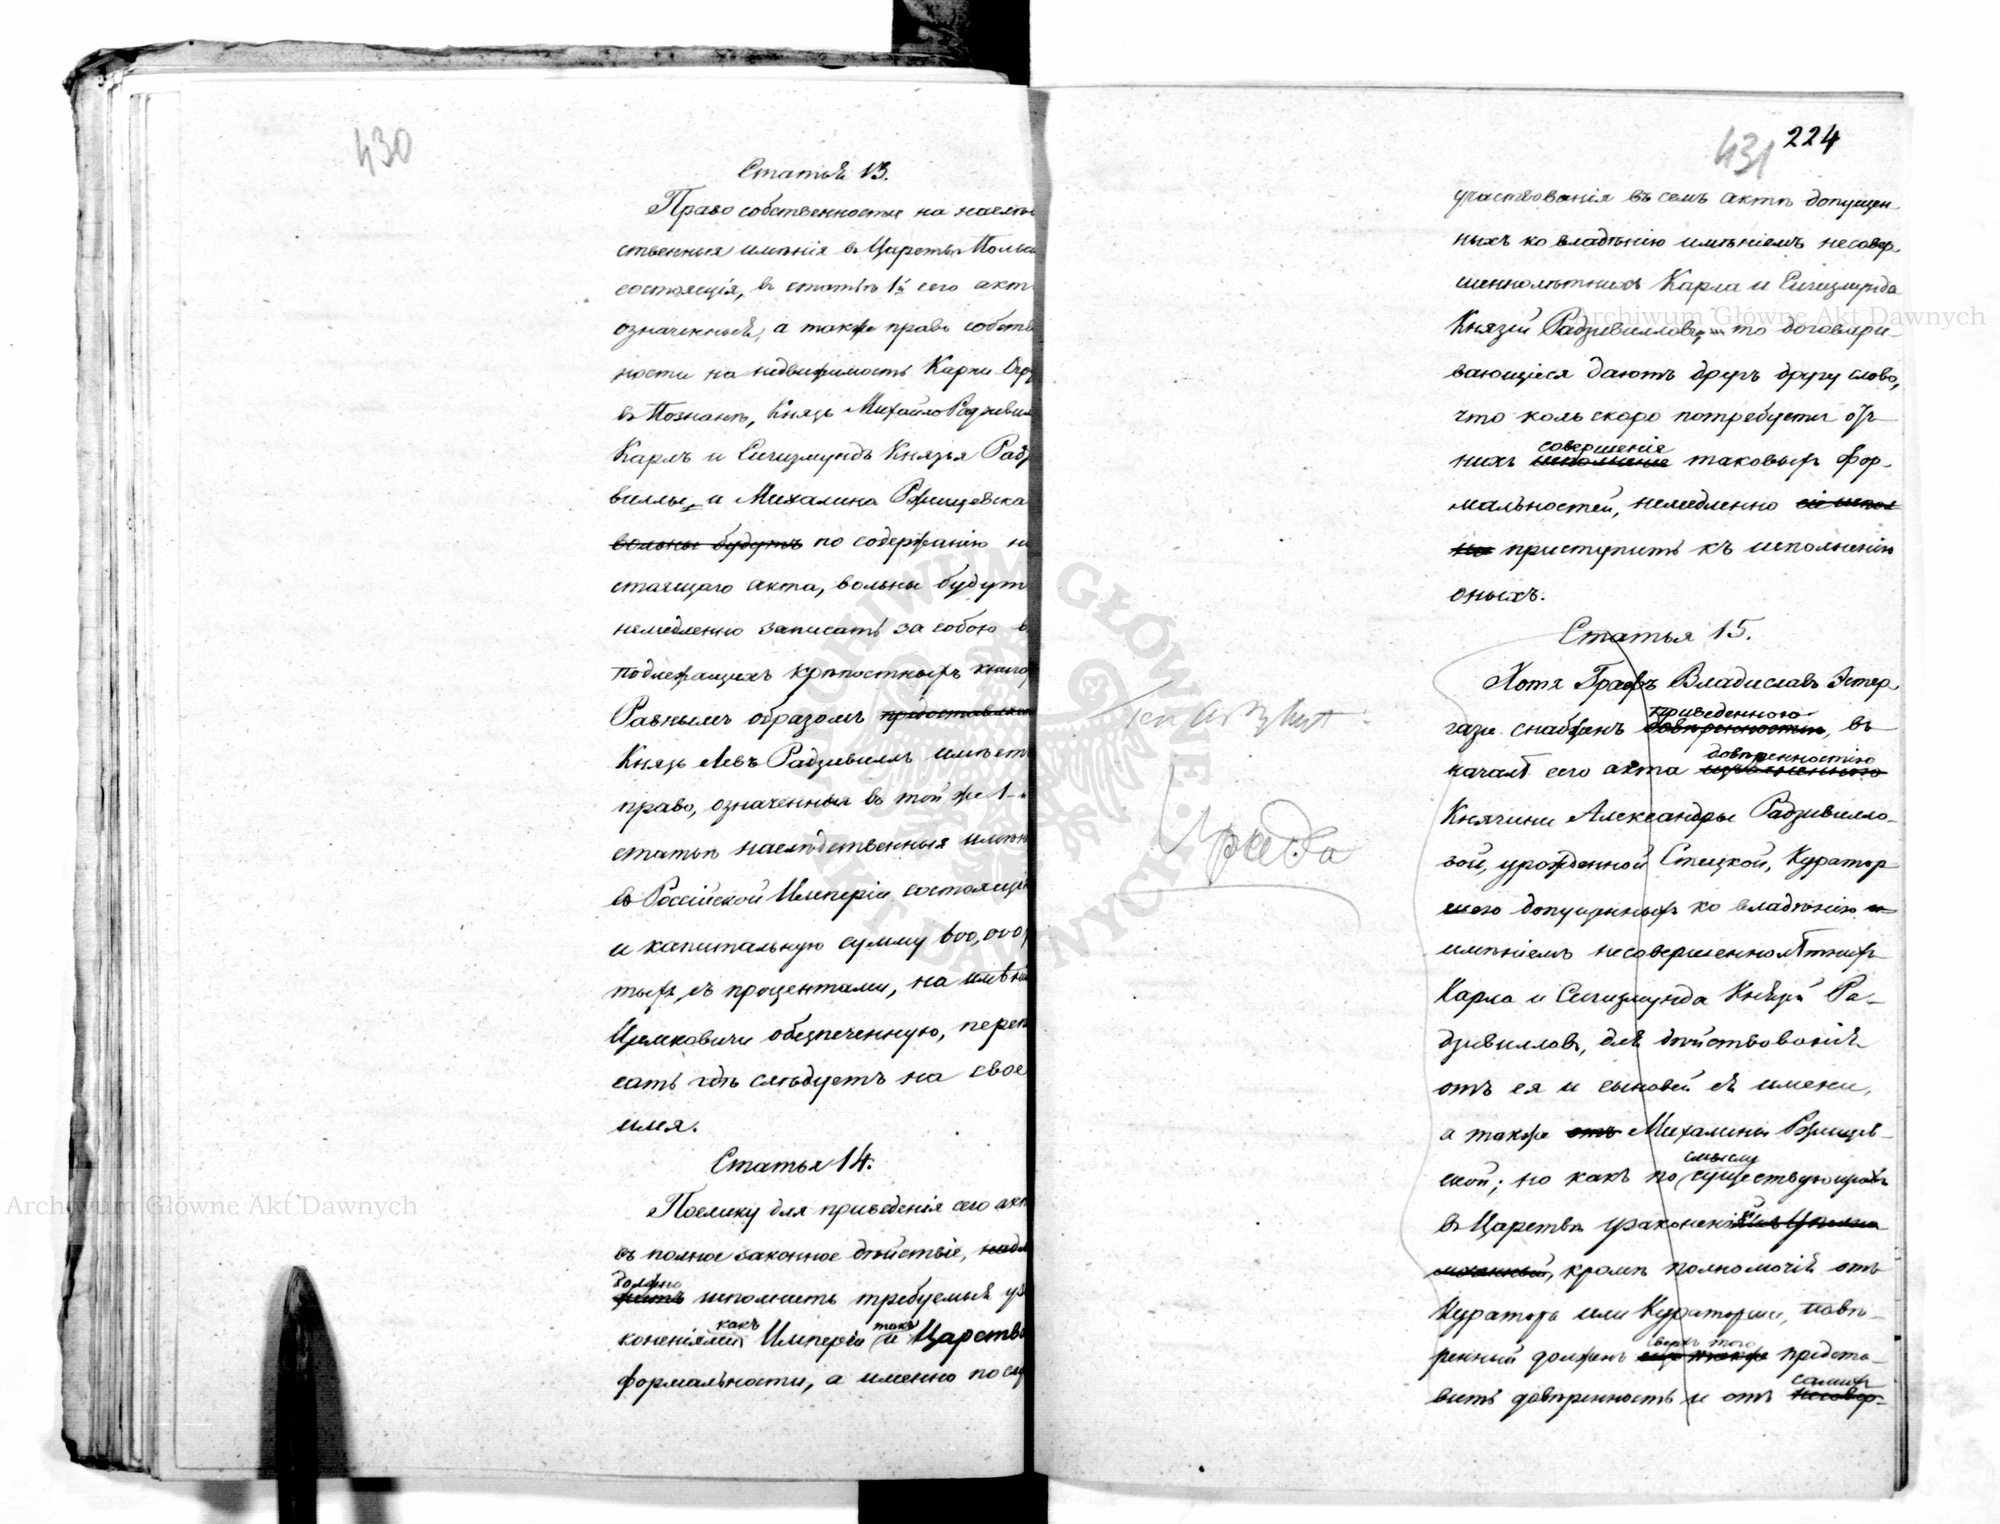 430
Статья 13.
Право собственности на наслѣд
ственныя имѣнія въ Царствѣ Польс
состоящія, въ статьѣ 1й сего акт
означенныя, а также право собств
ности на недвижимость Карпи
въ Познанѣ, Князь Михайло Радзивил
Карлъ и Сигизмундъ Князья Радз
виллы, и Михалина Ржищевска
вольны будутъ по содержанію н
стоящаго акта, вольны будут
немедленно записать за собою в
подлежащихъ крѣпостныхъ книга
Равнымъ образомъ предоставляет
Князь Левъ Радзивиллъ имѣет
право, означенныя въ той же 1-й
статьѣ наслѣдственныя имѣн
въ Россійской Имперіи состоящі
и капитальную сумму 600,000
тыхъ, съ процентами, на имѣні
обезпеченную, переп
сать гдѣ слѣдуетъ на свое
имя.
Статья 14.
Поелику для приведенія сего акт
въ полное законное дѣйствіе, надл
должно
житъ исполнить требуемыя уз
какъ такъ
коненіями Имперіи и Царства
формальности, а именно по слу
431 224
участвованія въ семъ актѣ допущен
ныхъ ко владѣнію имѣніемъ несовер
шеннолѣтнихъ Карла и Сигизмунда
Князей Радзивилловъ, то договари-
вающіеся даютъ другъ другу слово,
что коль скоро потребуется отъ
совершеніе
нихъ исполненіе таковыхъ фор-
мальностей, немедленно
приступить къ исполненію
оныхъ.
Статья 15.
Хотя Графъ Владиславъ Эстер
приведенною
гази снабженъ довѣренностію, въ
довѣренностію
началѣ сего акта
Княгини Александры Радзивилло-
вой, урожденной Стецкой, Куратор
шею допущенныхъ ко владѣнію
имѣніемъ несовершеннолѣтнихъ
Карла и Сигизмунда Князей Ра-
дзивилловъ, для дѣйствованія
отъ ея и сыновей ея имени,
а также отъ Михалины Ржищев-
смыслу
ской; но какъ по существующихъ
въ Царствѣ узаконеній
кромѣ полномочія отъ
Куратора или Кураторши, повѣ-
сверхъ того
ренный долженъ еще также предста-
самихъ
вить довѣренность и отъ несовер-
правда
Archiwum Główne Akt Dawnych
Archiwum Główne Akt Dawnych
ARCHIWUM GŁÓWNE AKT DAWNYCH